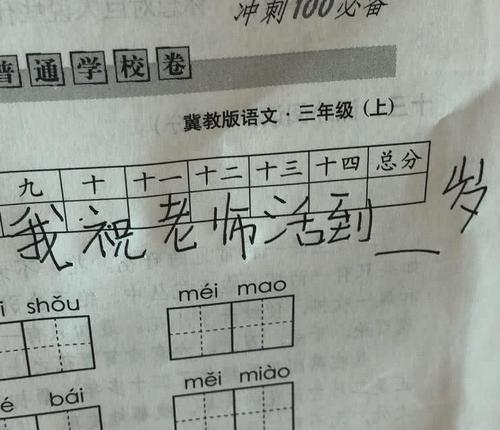 冲刺100必备
普通学校卷
冀教版语文·三年级(上)
九 十 十一 十二 十三 十四 总分
我祝老师活到__岁
shǒu méi mao
bái měi miào